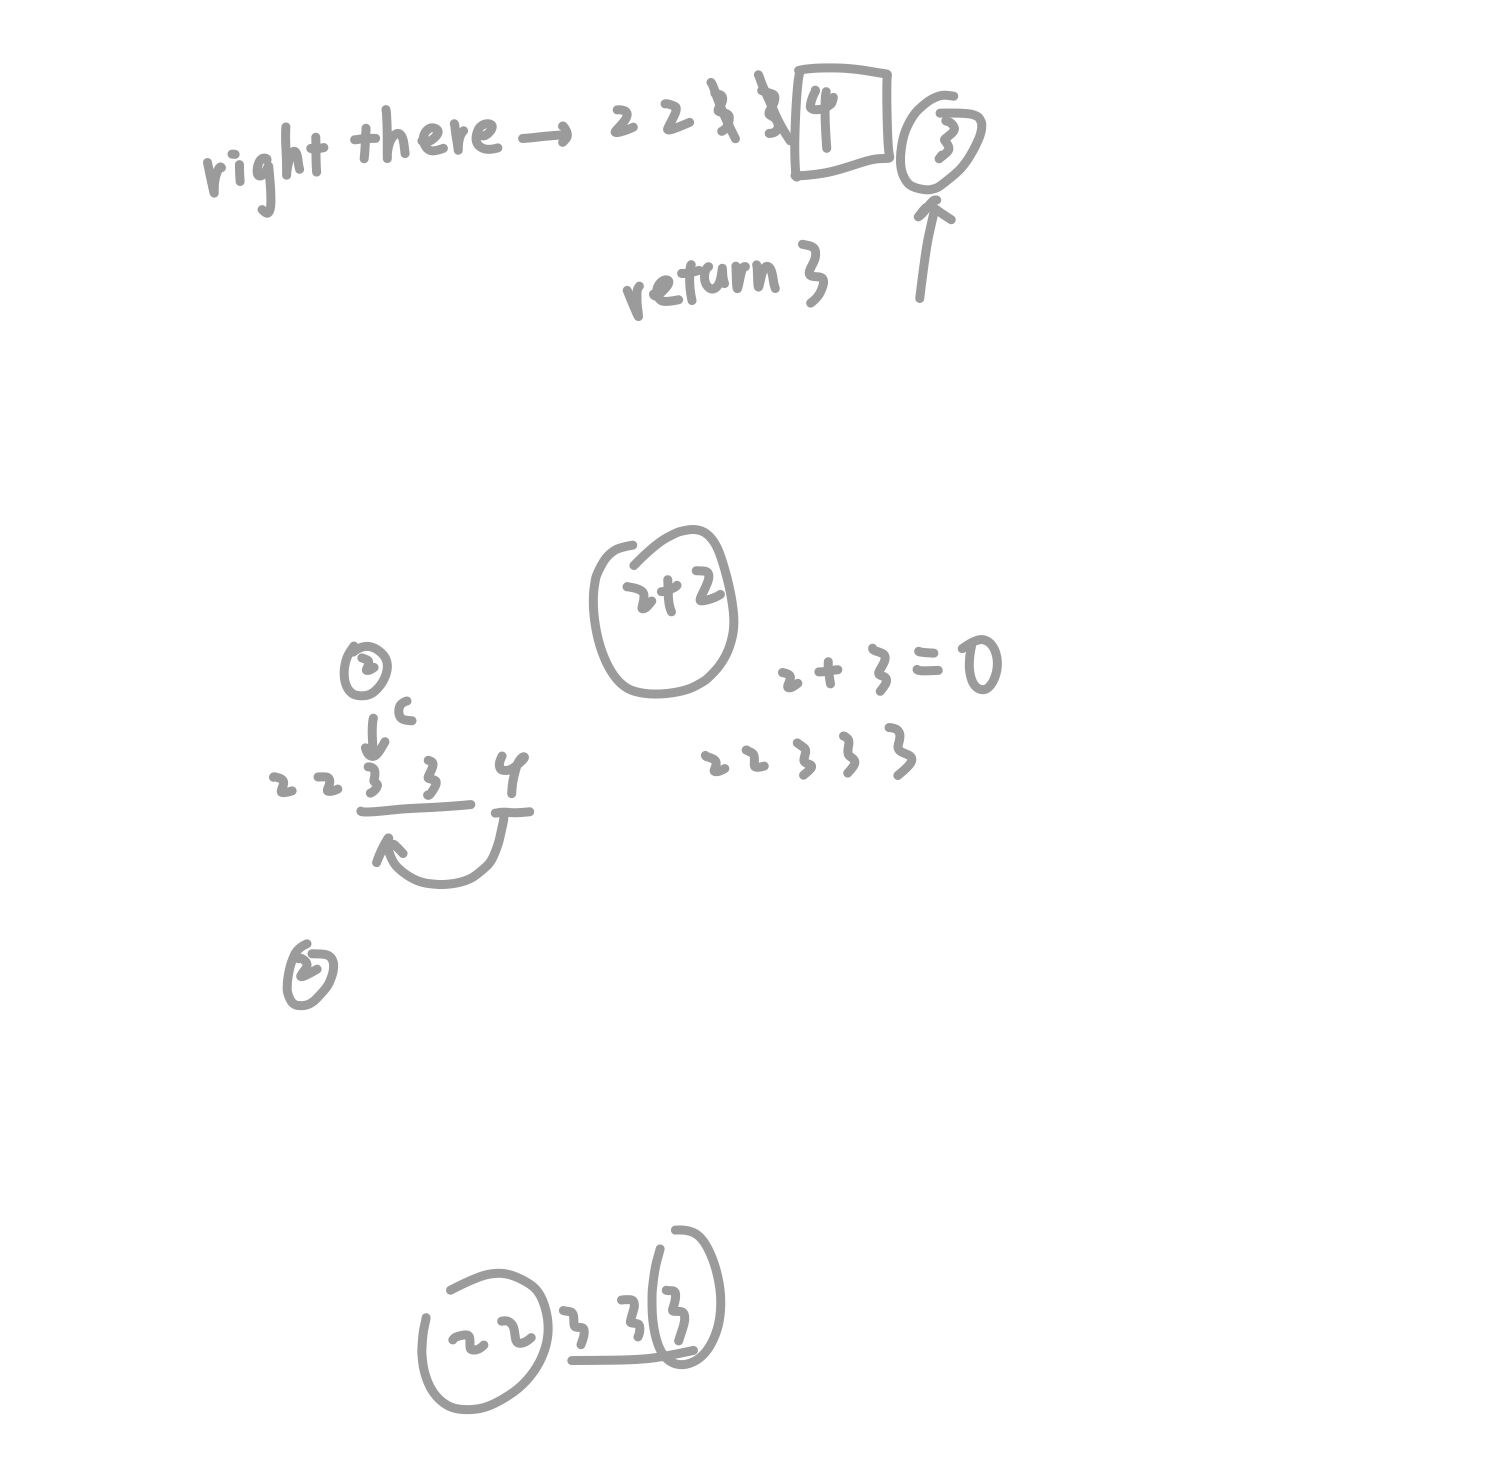 right there → 2 2 3 3 4 3
return 3
2+2
2
2 + 3 = 0
c
2 2 3 3 4
2 2 3 3 3
2
2 2 3 3 3